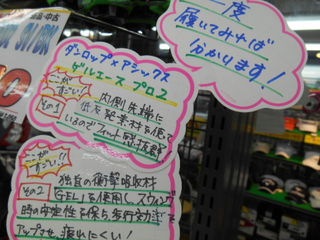 一度
履いてみれば
分かります!
ダンロップ×アシックス
ゲルエース プロ2
ここが
すごい!?
その1
内側先端に
低反発素材を使て
いるのでフィット感抜群
ここが
すごい!?
その2
独自の衝撃吸収材
GELを使用し、スウィング
時の安定性を保ち歩行効率を
アップさせ、疲れにくい!